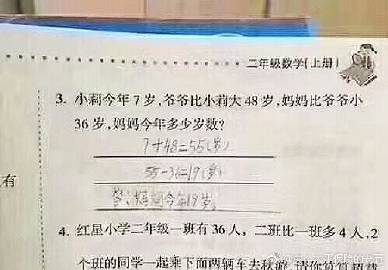 二年级数学(上册)
3. 小莉今年7岁,爷爷比小莉大48岁,妈妈比爷爷小
36岁,妈妈今年多少岁数?
7+48=55(岁)
55-36=19(岁)
答:妈妈今年19岁。
有
4. 红星小学二年级一班有36人,二班比一班多4人,2
个班的同学一起乘下面两辆车去秋游